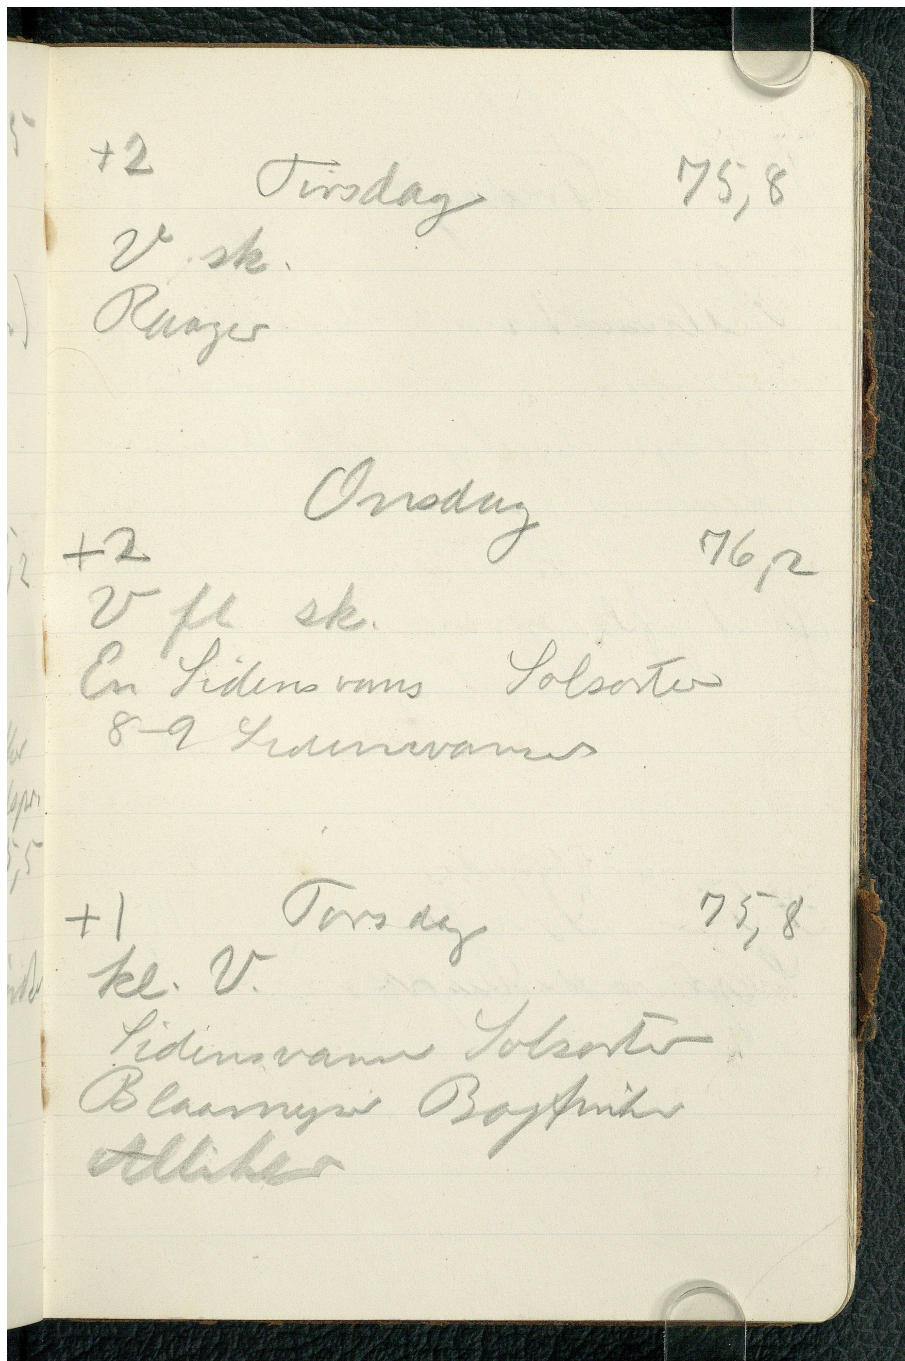 +2 Tirsdag 75,8
V sk.
Raager
Onsdag
+2 76,2
V fl sk.
En Sidensvans Solsorter
8-9 Sidensvanser
+1 Torsdag 75,8
kl. V.
Sidensvanser Solsorter
Blaamejser Bogfinker
Alliker